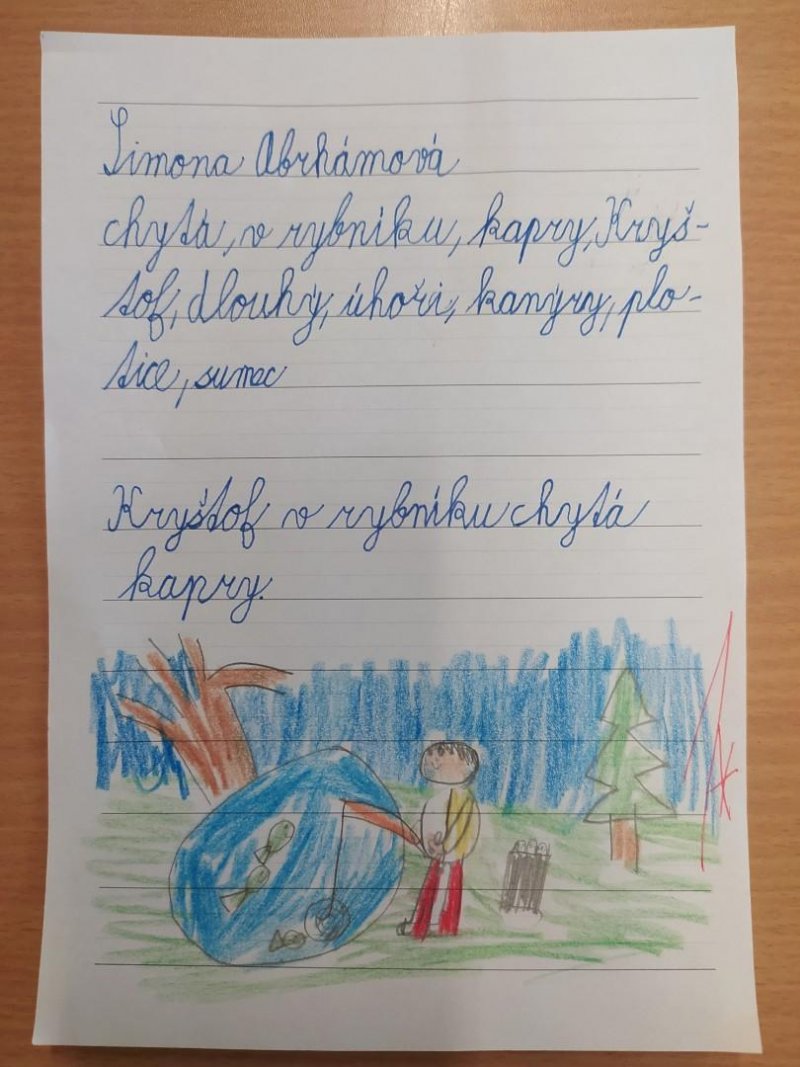 Simona Abrhámová
chytá, v rybníku, kapry, Kryš-
tof, dlouhý, úhoři, kanýry, plo-
tice, sumec
Kryštof v rybníku chytá
kapry.